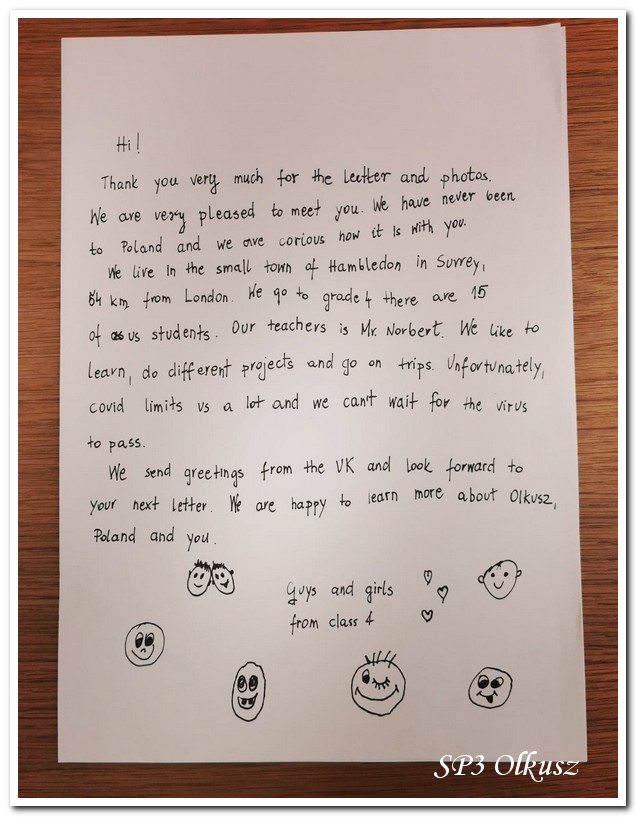 Hi!
Thank you very much for the leetter and photos.
We are very pleased to meet you. We have never been
to Poland and we are corious how it is with you.
We live in the small town of Hambledon in Surrey,
64 km from London. We go to grade 4 there are 15
of us students. Our teachers is Mr. Norbert. We like to
learn, do different projects and go on trips. Unfortunately,
covid limits us a lot and we can't wait for the virus
to pass.
We send greetings from the UK and look forward to
your next letter. We are happy to learn more about Olkusz,
Poland and you.
Guys and girls
from class 4
SP3 Olkusz